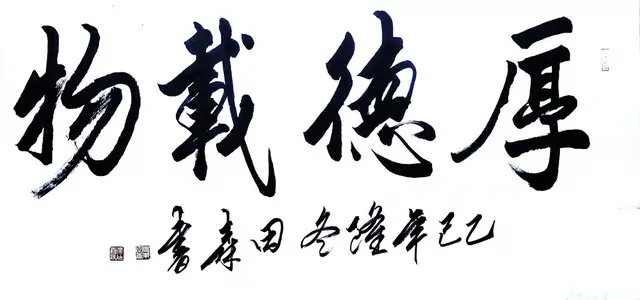 厚德載物
乙巳年隆冬田森書